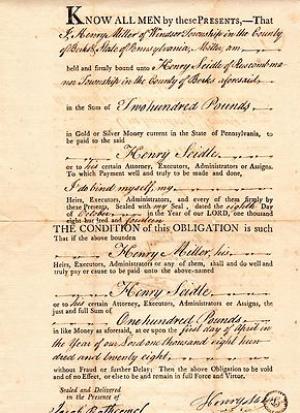 KNOW ALL MEN by these PRESENTS,—That
I, Henry Miller of Windsor Township in the County
of Berks & State of Pennsylvania, Miller, am,
held and firmly bound unto Henry Seidle of
Township in the County of Berks aforesaid
in the Sum of Two hundred Pounds
in Gold or Silver Money current in the State of Pennsylvania,
to be paid to the said
Henry Seidle
or his certain Attorney, Executors, Administrators or Assigns.
To which Payment well and truly to be made and done,
I do bind myself, my
Heirs, Executors, Administrators, and every of them firmly by
these Presents, Sealed with my Seal, dated the eighth Day
of October in the Year of our LORD, one thousand
eight hundred and fourteen
THE CONDITION of this OBLIGATION is such
That if the above bounden
Henry Miller, his
Heirs, Executors, Administrators, or any of them, shall and do well and
truly pay or cause to be paid unto the above-named
Henry Seidle
or to his certain Attorney, Executors, Administrators or Assigns, the
just and full Sum of
One hundred Pounds
in like Money as aforesaid, at or upon the first day of April in
the Year of our Lord one thousand eight hun
dred and twenty eight,
without Fraud or further Delay; Then the above Obligation to be void
and of no Effect, or else to be and remain in full Force and Virtue.
Sealed and Delivered
in the Presence of
Henry
Jacob